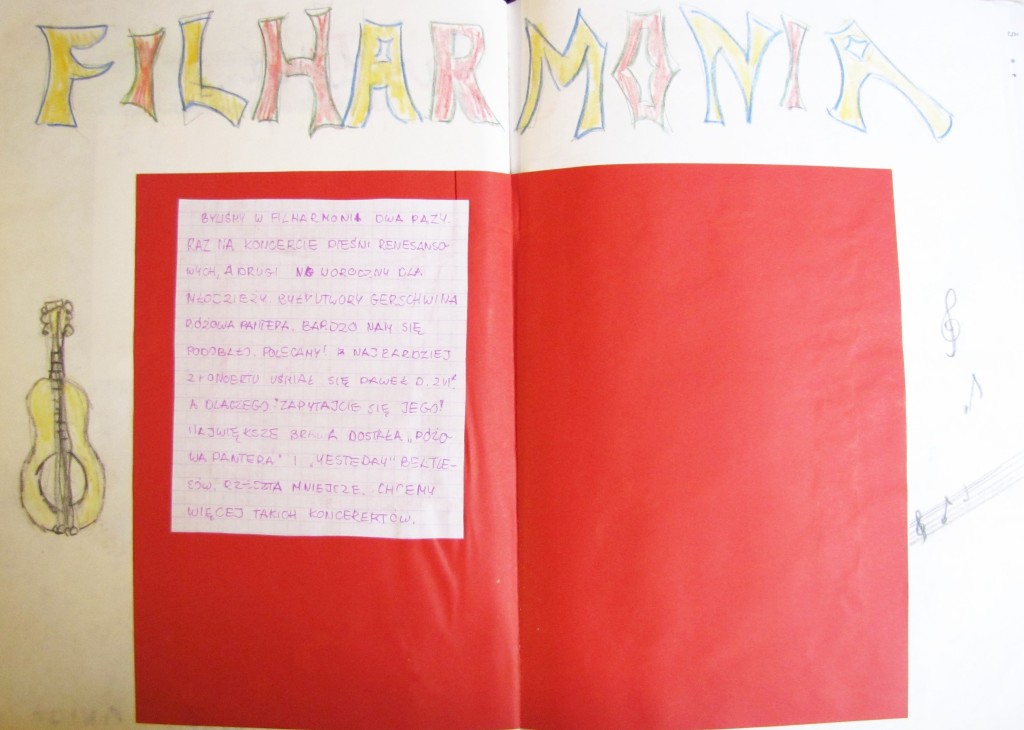 FILHARMONIA
BYLIŚMY W FILHARMONIA DWA RAZY.
RAZ NA KONCERCIE PIEŚNI RENESANSO-
WYCH, A DRUGI NOWOROCZNY DLA
MŁODZIEŻY. BYŁY UTWORY GERSCHWINA
RÓŻOWA PANTERA. BARDZO NAM SIĘ
PODOBAŁO. POLECAMY! NAJBARDZIEJ
Z KONCERTU UŚMIAŁ SIĘ PAWEŁ D.
A DLACZEGO? ZAPYTAJCIE SIĘ JEGO!
NAJWIĘKSZE BRAWA DOSTAŁA „RÓŻO-
WA PANTERA" I „YESTEDAY" BEATLE-
SÓW. RZESZTA MNIEJSZE. CHCEMY
WIĘCEJ TAKICH KONCERERTÓW.